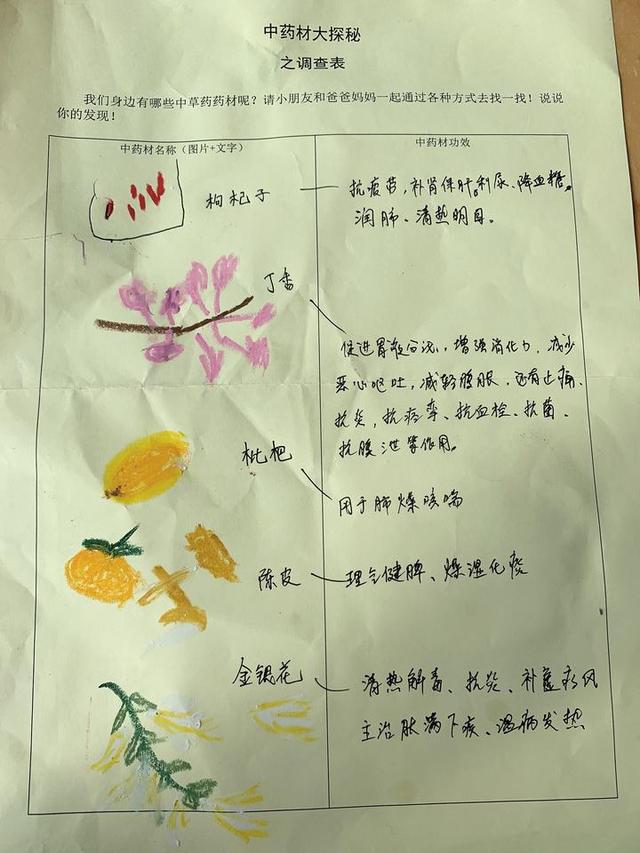 中药材大探秘
之调查表
我们身边有哪些中草药药材呢？请小朋友和爸爸妈妈一起通过各种方式去找一找！说说
你的发现！
中药材名称（图片+文字）
中药材功效
枸杞子
抗疲劳，补肾保肝。利尿、降血糖。
润肺、清热明目。
丁香
促进胃液分泌，增强消化力，减少
恶心呕吐，减轻腹胀，还有止痛、
抗炎，抗痉挛、抗血栓、抗菌、
抗腹泄等作用。
枇杷
用于肺燥咳喘
陈皮
理气健脾、燥湿化痰
金银花
清热解毒、抗炎、补虚疗风
主治胀满下疾、温病发热